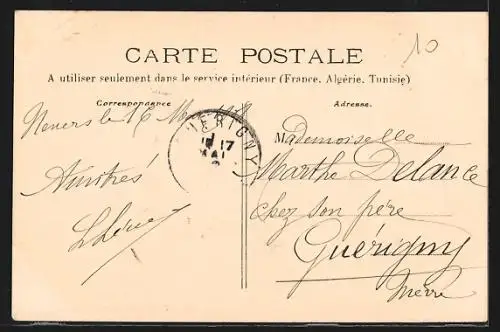 10
CARTE POSTALE
A utiliser seulement dans le service intérieur (France, Algérie, Tunisie)
Correspondance
Adresse.
Nevers le 16 Mai
Amitiés
GUERIGNY
17
MAI
Mademoiselle
Marthe Delance
chez son père
Guérigny
Nièvre